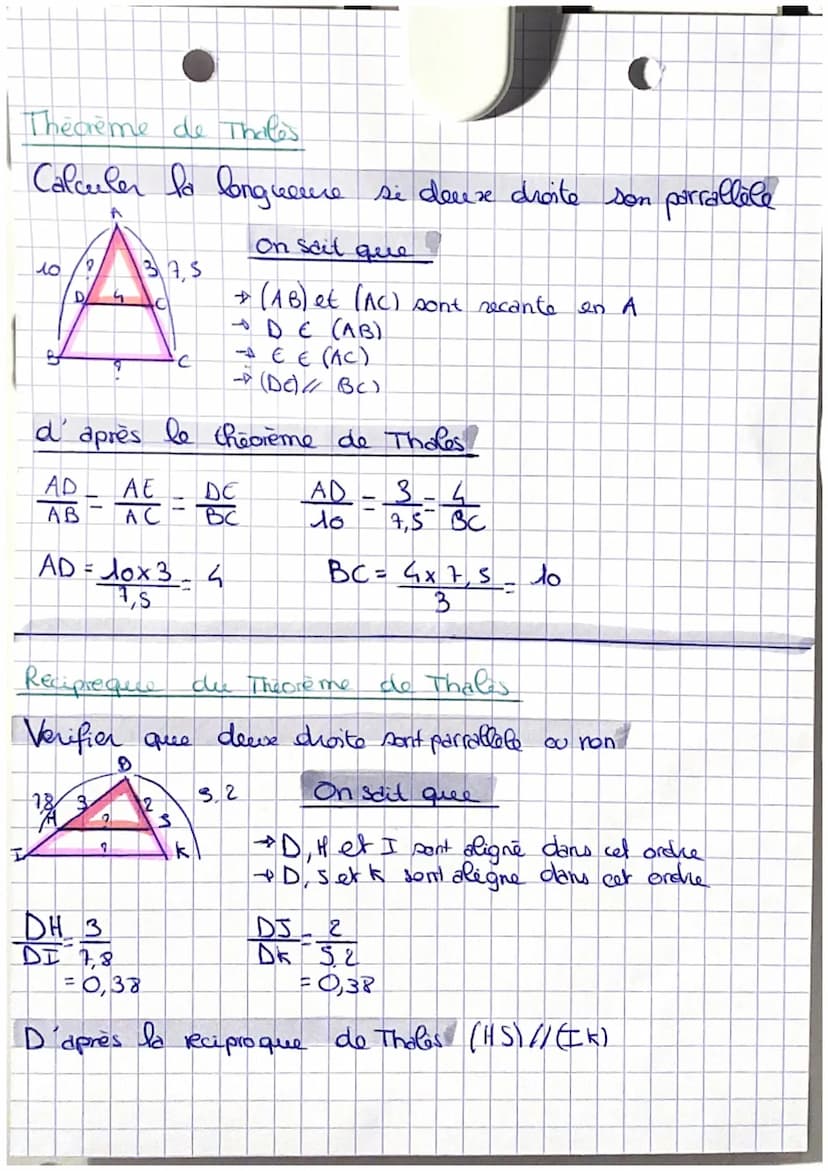 Théorème de Thalès
Calculer la longueure si deux droite son parrallèle
A
10 ? 3 7,5
D 4 C
B ? C
On sait que
→ (AB) et (AC) sont secante en A
→ D ∈ (AB)
→ E ∈ (AC)
→ (DE) // BC)
d'après le théorème de Thales
AD/AB = AE/AC = DE/BC AD/10 = 3/7,5 = 4/BC
AD = 10x3/7,5 = 4 BC = 4x7,5/3 = 10
Recipreque du Théorème de Thalès
Verifier que deux droite sont parrallele ou non
D
7,8 3 2 5,2
H ? S
I ? K
On sait que
→ D, H et I sont aligné dans cet ordre
→ D, S et K sont aligne dans cet ordre
DH/DI = 3/7,8 DS/DK = 2/5,2
= 0,38 = 0,38
D'après la reciproque de Thales (HS) // (IK)